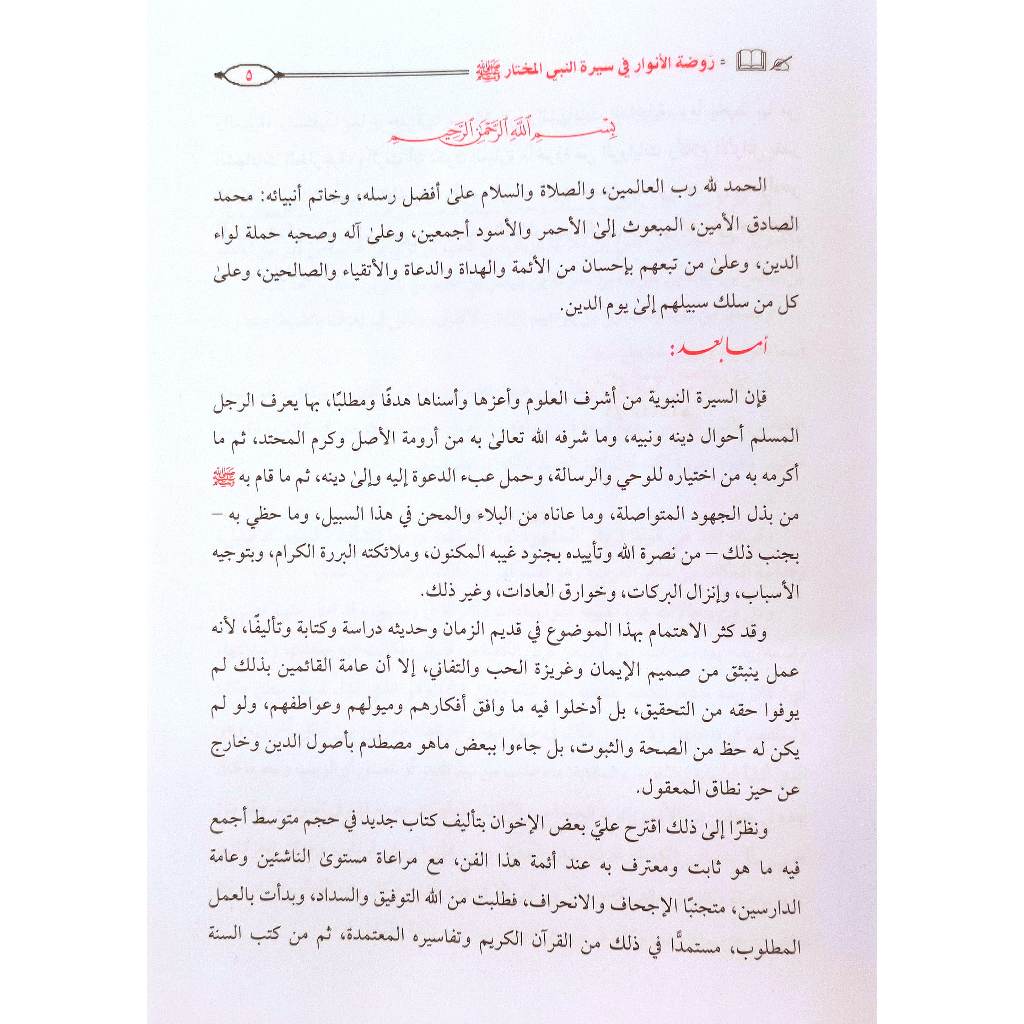 روضة الأنوار في سيرة النبي المختار ﷺ
٥
بِسْمِ ٱللَّهِ ٱلرَّحْمَٰنِ ٱلرَّحِيمِ
الحمد لله رب العالمين، والصلاة والسلام علىٰ أفضل رسله، وخاتم أنبيائه: محمد
الصادق الأمين، المبعوث إلىٰ الأحمر والأسود أجمعين، وعلىٰ آله وصحبه حملة لواء
الدين، وعلىٰ من تبعهم بإحسان من الأئمة والهداة والدعاة والأتقياء والصالحين، وعلىٰ
كل من سلك سبيلهم إلىٰ يوم الدين.
أما بعد:
فإن السيرة النبوية من أشرف العلوم وأعزها وأسناها هدفًا ومطلبًا، بها يعرف الرجل
المسلم أحوال دينه ونبيه، وما شرفه الله تعالىٰ به من أرومة الأصل وكرم المحتد، ثم ما
أكرمه به من اختياره للوحي والرسالة، وحمل عبء الدعوة إليه وإلىٰ دينه، ثم ما قام به ﷺ
من بذل الجهود المتواصلة، وما عاناه من البلاء والمحن في هذا السبيل، وما حظي به –
بجنب ذلك – من نصرة الله وتأييده بجنود غيبه المكنون، وملائكته البررة الكرام، وبتوجيه
الأسباب، وإنزال البركات، وخوارق العادات، وغير ذلك.
وقد كثر الاهتمام بهذا الموضوع في قديم الزمان وحديثه دراسة وكتابة وتأليفًا، لأنه
عمل ينبثق من صميم الإيمان وغريزة الحب والتفاني، إلا أن عامة القائمين بذلك لم
يوفوا حقه من التحقيق، بل أدخلوا فيه ما وافق أفكارهم وميولهم وعواطفهم، ولو لم
يكن له حظ من الصحة والثبوت، بل جاءوا ببعض ماهو مصطدم بأصول الدين وخارج
عن حيز نطاق المعقول.
ونظرًا إلىٰ ذلك اقترح عليَّ بعض الإخوان بتأليف كتاب جديد في حجم متوسط أجمع
فيه ما هو ثابت ومعترف به عند أئمة هذا الفن، مع مراعاة مستوىٰ الناشئين وعامة
الدارسين، متجنبًا الإجحاف والانحراف، فطلبت من الله التوفيق والسداد، وبدأت بالعمل
المطلوب، مستمدًّا في ذلك من القرآن الكريم وتفاسيره المعتمدة، ثم من كتب السنة